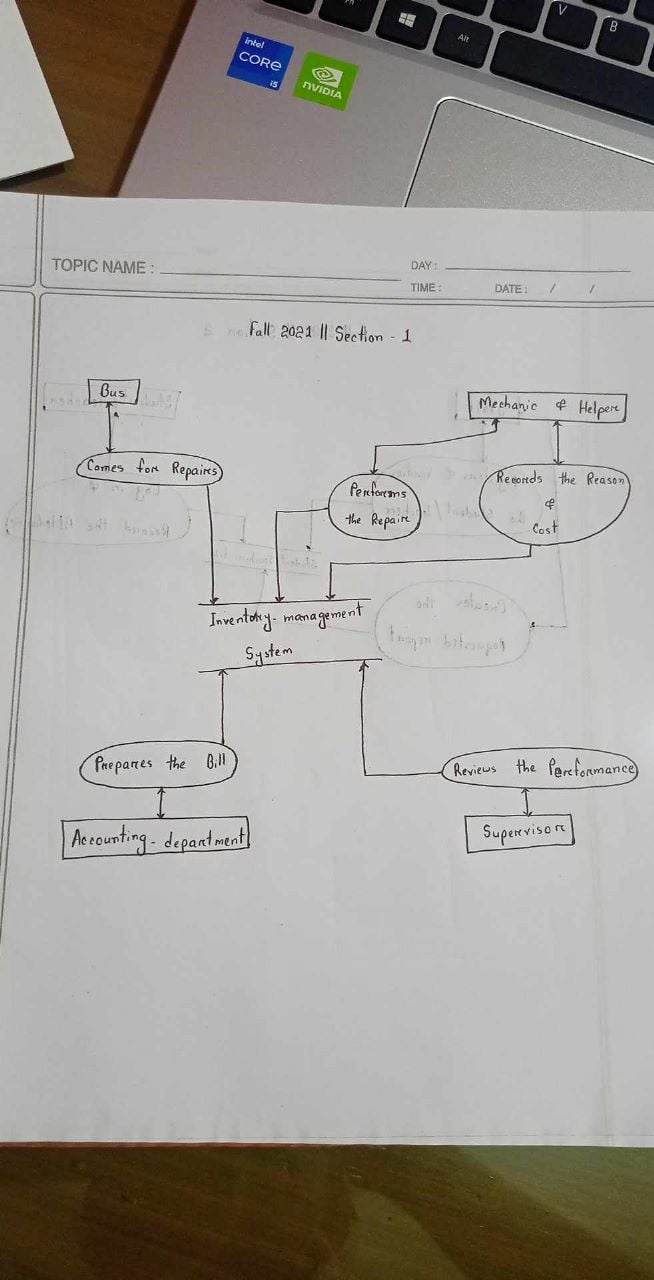 Fn
Alt
V
B
intel
CORE
i5
NVIDIA
TOPIC NAME :
DAY :
TIME :
DATE : / /
Fall 2021 || Section - 1
Bus
Mechanic & Helper
Comes for Repairs
Performs
the Repair
Records the Reason
&
Cost
Inventory-management
System
Prepares the Bill
Reviews the Performance
Accounting-department
Supervisor